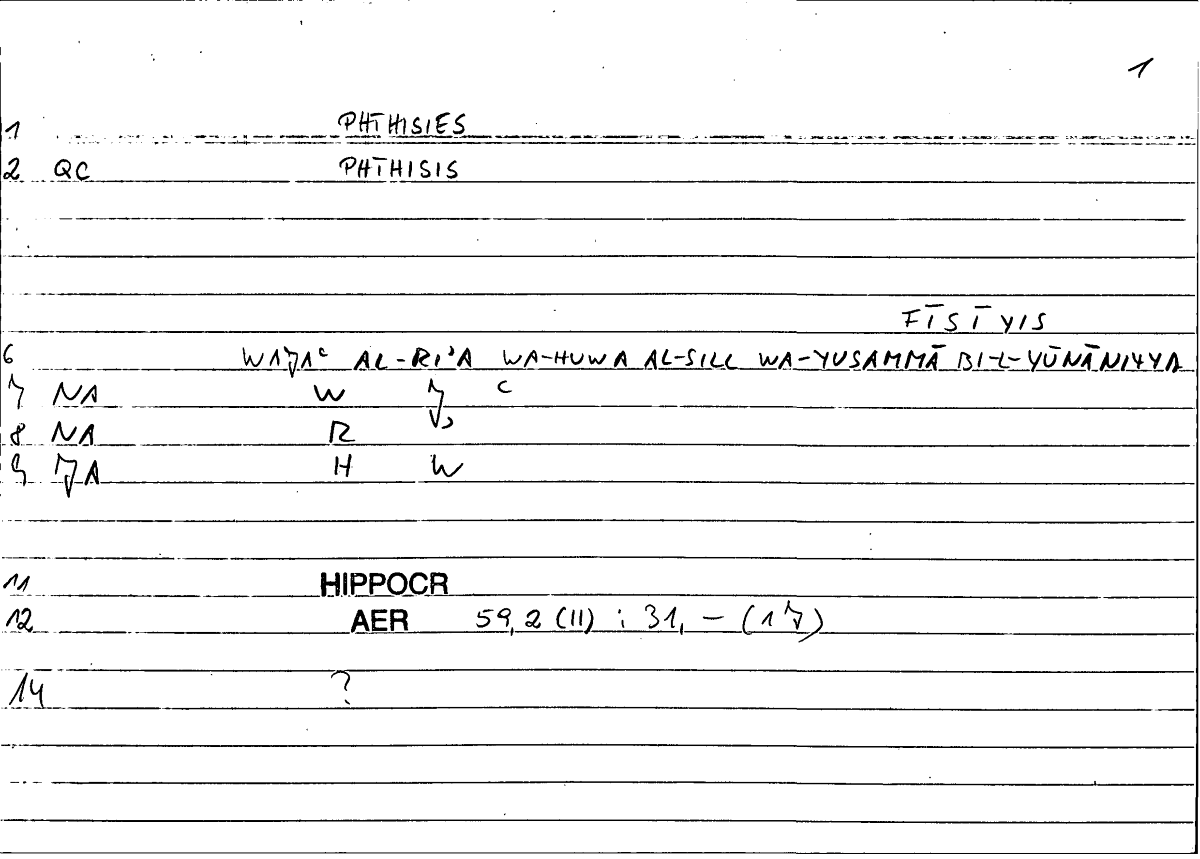 1
1 PHTHISIES
2 QC PHTHISIS
FĪSĪYIS
6 WAJAʿ AL-RIʾA WA-HUWA AL-SILL WA-YUSAMMĀ BI-L-YŪNĀNIYYA
7 NA W J ʿ
8 NA R
9 JA H W
11 HIPPOCR
12 AER 59,2 (II) ; 31, – (17)
14 ?